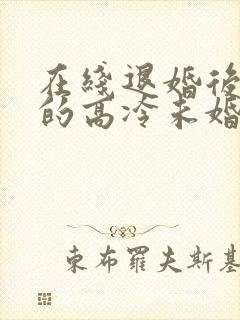 在綫退婚後
的高冷未婚
東布羅夫斯基